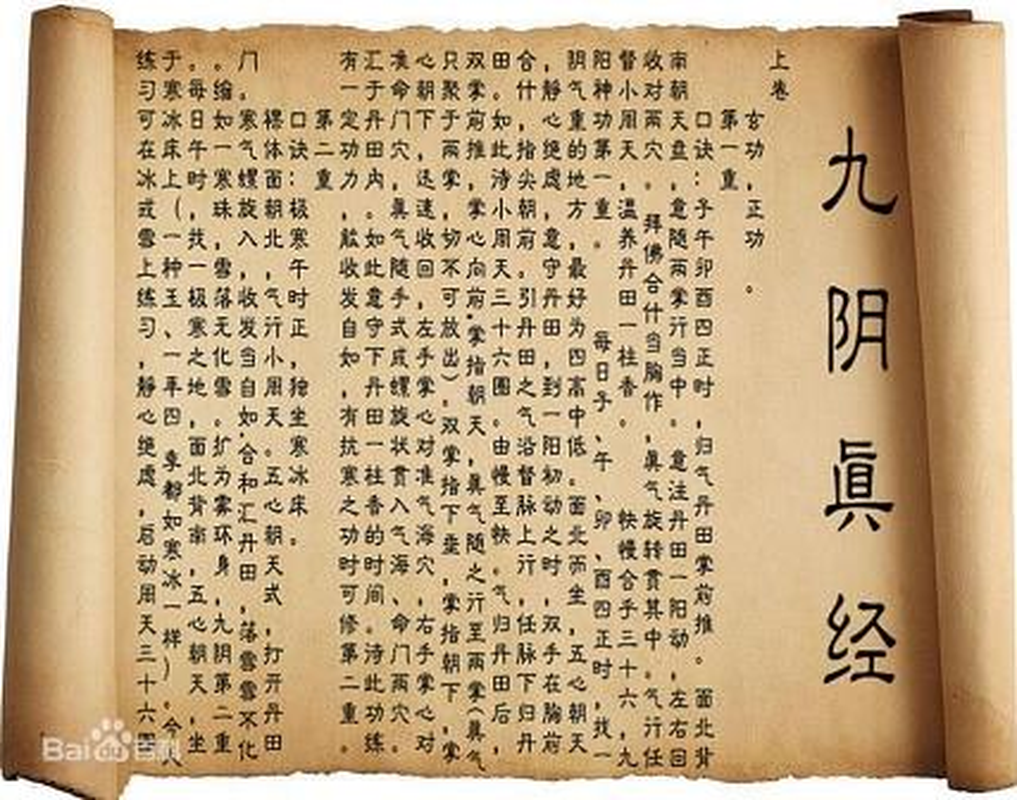 九阴眞经
上卷
玄功，正功。
第一重
口诀：子午卯酉四正时，归气丹田掌前推。面北背
南朝天盘，意随两掌行当中。意注丹田一阳动，左右回
收对两穴。拜佛合什当胸作，眞气旋转贯其中。气行任
督小周天，温养丹田一柱香。快慢合乎三十六，九
阳神功第一重。每日子、午、卯、酉四正时，找一
阴气重的地方，最好为四高中低。面北而坐，五心朝天
，静心绝虑，意守丹田，到一阳初动之时，双手在胸前
合什，指尖朝前。引丹田之气沿督脉上行，任脉下归丹
田。如此诗小周天三十六圈。由慢至快。气归丹田后，
双掌前推，掌心向前，掌指朝天，眞气随之行至两掌（眞气
只聚于两掌，切不可放出）。双掌指下垂，掌指朝下，掌
心朝下，迅速收回，左手掌心对准气海穴，右手掌心对
准命门穴，眞气随手式成螺旋状贯入气海、命门两穴。
汇于丹田内。如此意守下丹田一柱香的时间。诗此功练
有一定功力，能收发自如，有抗寒之功时可修第二重。
第二重
口诀：极寒午时正，独坐寒冰床。
裸体面朝北，气行小周天。五心朝天式，打开丹田
门寒气螺旋入，收发当自如，合和汇丹田，落雪雪不化
。缩如一寒珠，雪落无化雪。扩为雾环身，九阴第二重
。每日午时，找一极寒之地，面北背南，五心朝天，坐
于寒冰床上（，一种玉、一年四季都如寒冰一样）。今人
练习可在冰或雪上练习，静心绝虑，启动周天三十六圈
Bai百科